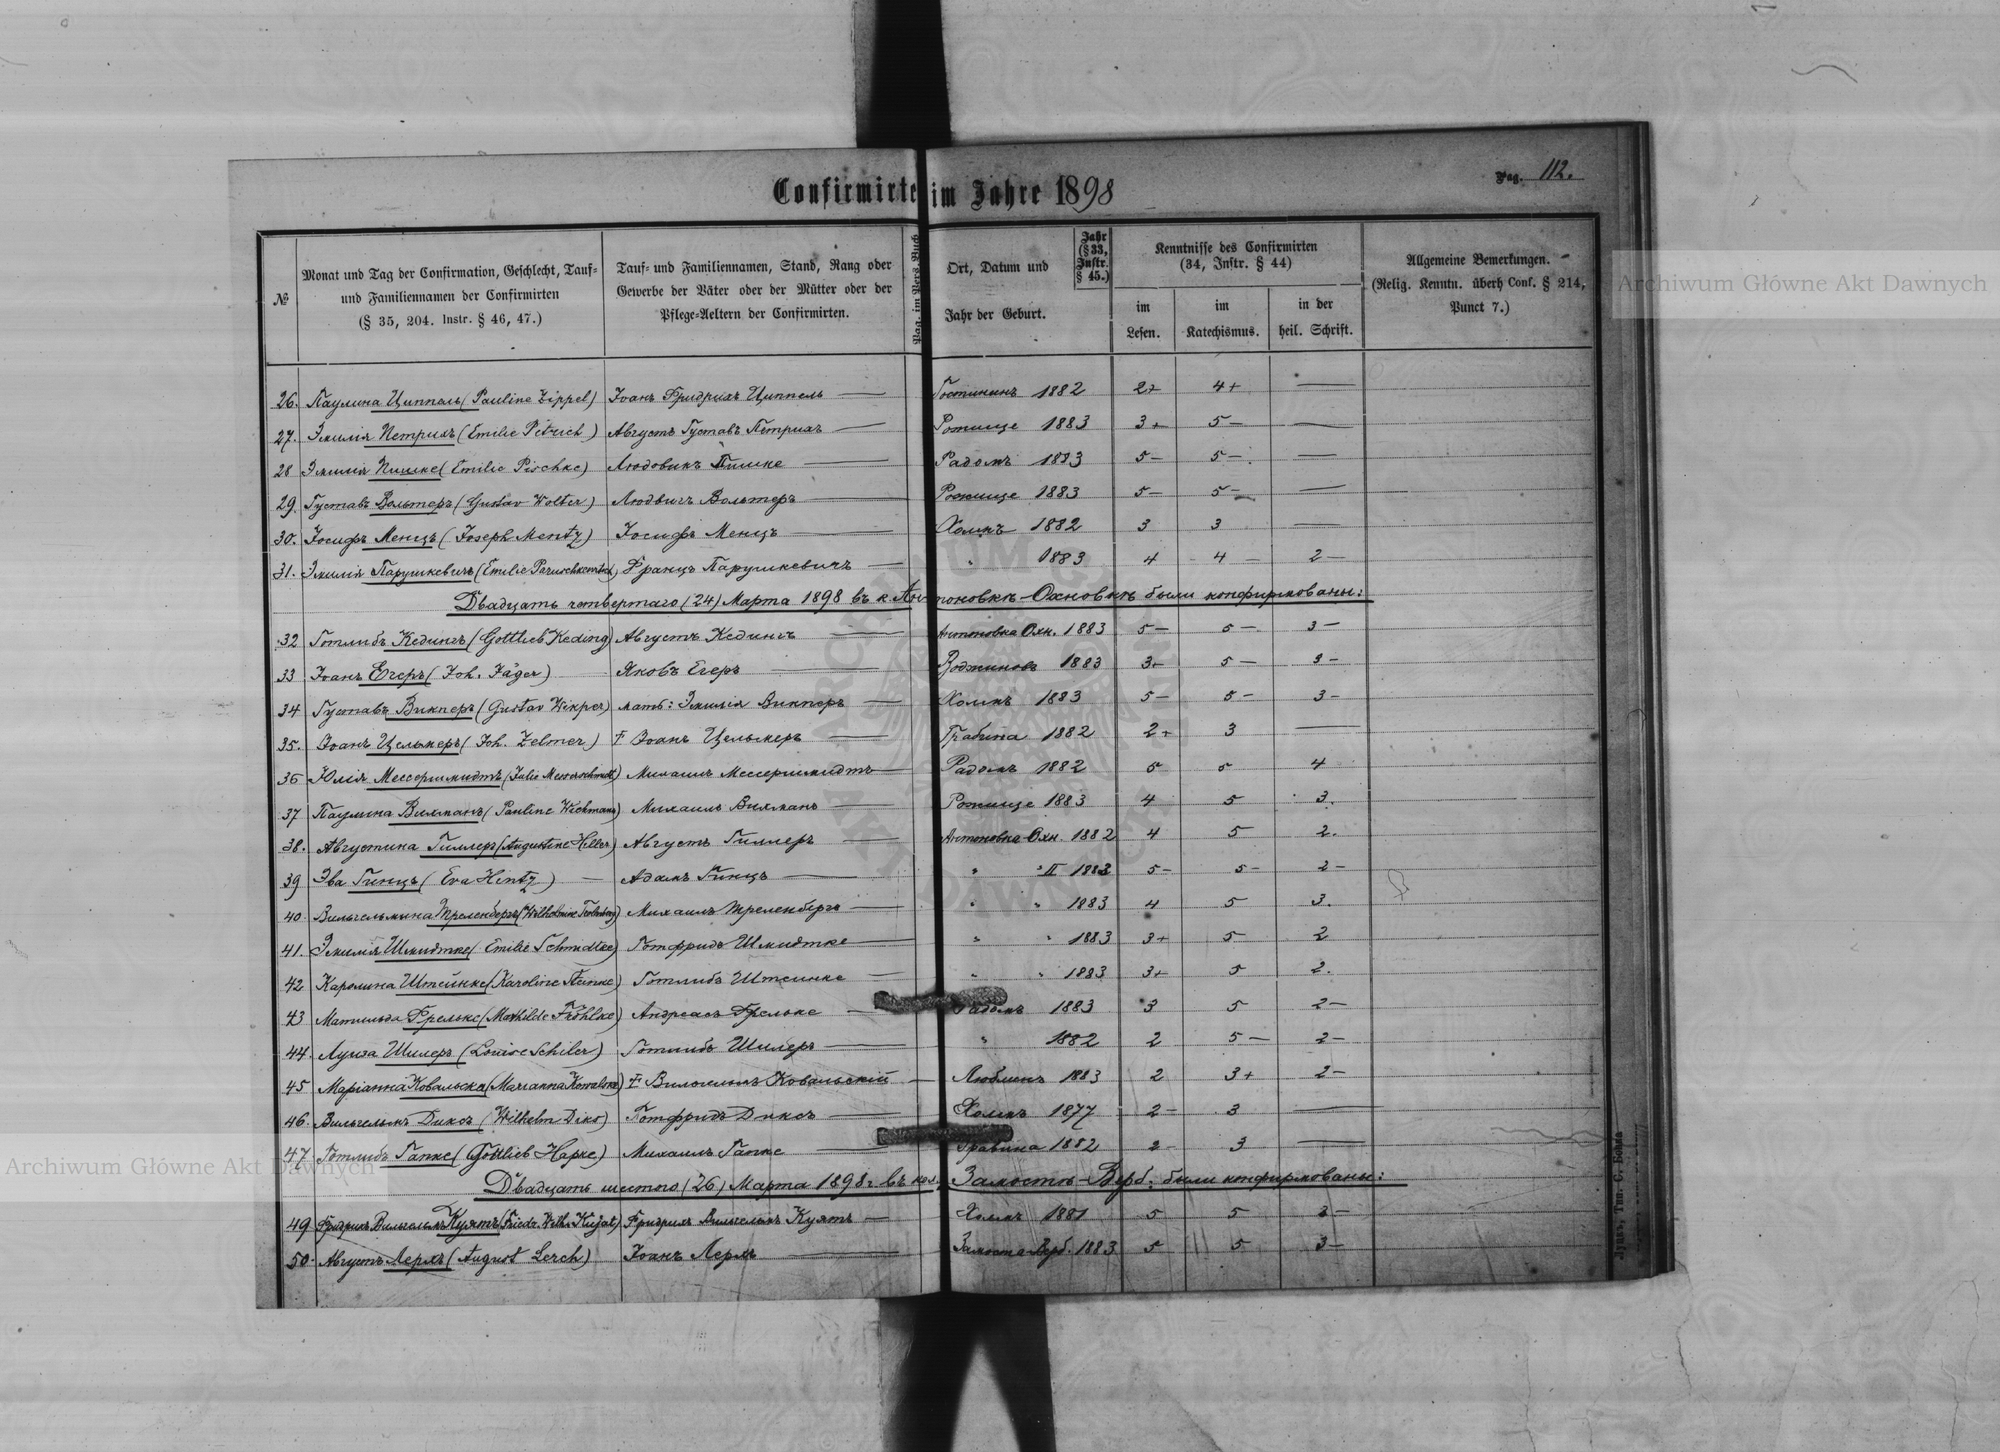 Confirmirte im Jahre 1898
Pag. 112.
№
Monat und Tag der Confirmation, Geschlecht, Tauf-
und Familiennamen der Confirmirten
(§ 35, 204. Instr. § 46, 47.)
Tauf- und Familiennamen, Stand, Rang oder
Gewerbe der Väter oder der Mütter oder der
Pflege-Aeltern der Confirmirten.
Pag. im Pers. Buch
Ort, Datum und
Jahr der Geburt.
Jahr
(§ 33,
Instr.
§ 45.)
Kenntnisse des Confirmirten
(34, Instr. § 44)
im
Lesen.
im
Katechismus.
in der
heil. Schrift.
Allgemeine Bemerkungen.
(Relig. Kenntn. überh Conf. § 214,
Punct 7.)
Archiwum Główne Akt Dawnych
26. Паулина Циппель (Pauline Zippel) Іоанъ Фридрихъ Циппель — Гостининъ 1882 2+ 4+ —
27. Эмилія Петрихъ (Emilie Petrich) Августъ Густавъ Петрихъ — Рожище 1883 3+ 5— —
28 Эмилія Пишке (Emilie Pischke) Людовикъ Пишке — Радомъ 1883 5— 5—. —
29. Густавъ Вольтеръ (Gustav Wolter) Людвигъ Вольтеръ — Рожище 1883 5— 5— —
30. Іосифъ Менцъ (Joseph Mentz) Іосифъ Менцъ — Холмъ 1882 3 3 —
31. Эмилія Парушкевичъ (Emilie Paruschkewitsch) Францъ Парушкевичъ — " 1883 4 4— 2—
Двадцать четвертаго (24) Марта 1898 въ к. Антоновкѣ-Охновкѣ были конфирмованы:
32 Готлибъ Кедингъ (Gottlieb Keding) Августъ Кедингъ — Антоновка Охн. 1883 5— 5— 3—
33 Іоанъ Егеръ (Joh. Jäger) Яковъ Егеръ — 1883 3+ 5— 3—
34 Густавъ Викперъ (Gustav Wikper) мать: Эмилія Викперъ — Холмъ 1883 5— 5— 3—
35. Іоанъ Цельмеръ (Joh. Zelmer) † Іоанъ Цельмеръ — Грабина 1882 2+ 3 —
36 Юлія Мессершмидтъ (Julie Messerschmidt) Михаилъ Мессершмидтъ — Радомъ 1882 5 5 4
37 Паулина Вихманъ (Pauline Wichmann) Михаилъ Вихманъ — Рожище 1883 4 5 3.
38. Августина Гиллеръ (Augustine Hiller) Августъ Гиллеръ — Антоновка Охн. 1882 4 5 2.
39 Эва Гинцъ (Eva Hintz) — Адамъ Гинцъ — " " II 1883 5— 5— 2—
40. Вильгельмина Треленбергъ Михаилъ Треленбергъ — " " 1883 4 5 3.
41. Эмилія Шмидтке (Emilie Schmidtke) Готфридъ Шмидтке — " " 1883 3+ 5 2
42 Каролина Штейнке (Karoline Steinke) Готлибъ Штейнке — " " 1883 3+ 5 2.
43 Матильда Фрельке (Mathilde Fröhlke) Андреасъ Фрельке — Радомъ 1883 3 5 2—
44. Луиза Шилеръ (Louise Schiler) Готлибъ Шилеръ — " 1882 2 5— 2—
45 Маріанна Ковальска (Marianna Kowalska) † Вильгельмъ Ковальскій — Люблинъ 1883 2 3+ 2—
46. Вильгельмъ Диксъ (Wilhelm Diks) Готфридъ Диксъ — Холмъ 1877 2— 3 —
47. Готлибъ Гапке (Gottlieb Hapke) Михаилъ Гапке — Грабина 1882 2— 3 —
Archiwum Główne Akt Dawnych
Двадцать шестого (26) Марта 1898 г. въ кол. Замостѣ-Верб. были конфирмованы:
49 Фридрихъ Вильгельмъ Куятъ (Friedr. Wilh. Kujat) Фридрихъ Вильгельмъ Куятъ — Холмъ 1881 5 5 3—
50. Августъ Лерхъ (August Lerch) Іоанъ Лерхъ — Замостье Верб. 1883 5 5 3—